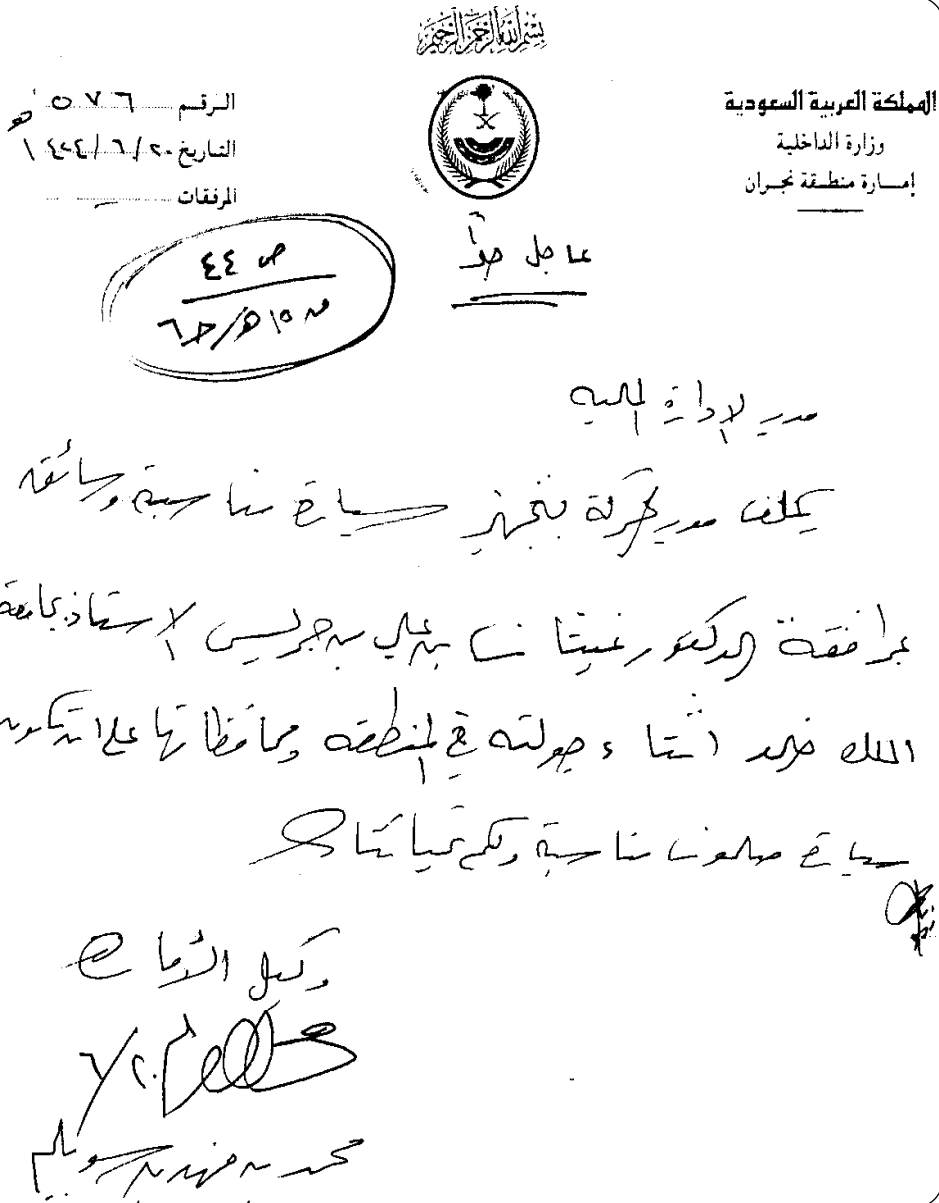 بسم الله الرحمن الرحيم
المملكة العربية السعودية
وزارة الداخلية
إمـــارة منطـقة نجـران
الرقم ٥٧٦
التاريخ ٢٠/٦/١٤٢٤هـ
المرفقات
عاجل جداً
ص ٤٤
مدير الادارة المالية
يكلف مدير الحركة بتجهيز سيارة مناسبة وسائقه
بمرافقة الدكتور غيثان بن علي بن جريس الاستاذ بجامعة
الملك خالد اثناء جولته في المنطقة ومحافظاتها على ان تكون
سيارة صالون مناسبة ولكم تحياتنا
وكيل الأمارة
٢٠/٦
محمد بن فهد بن سويلم